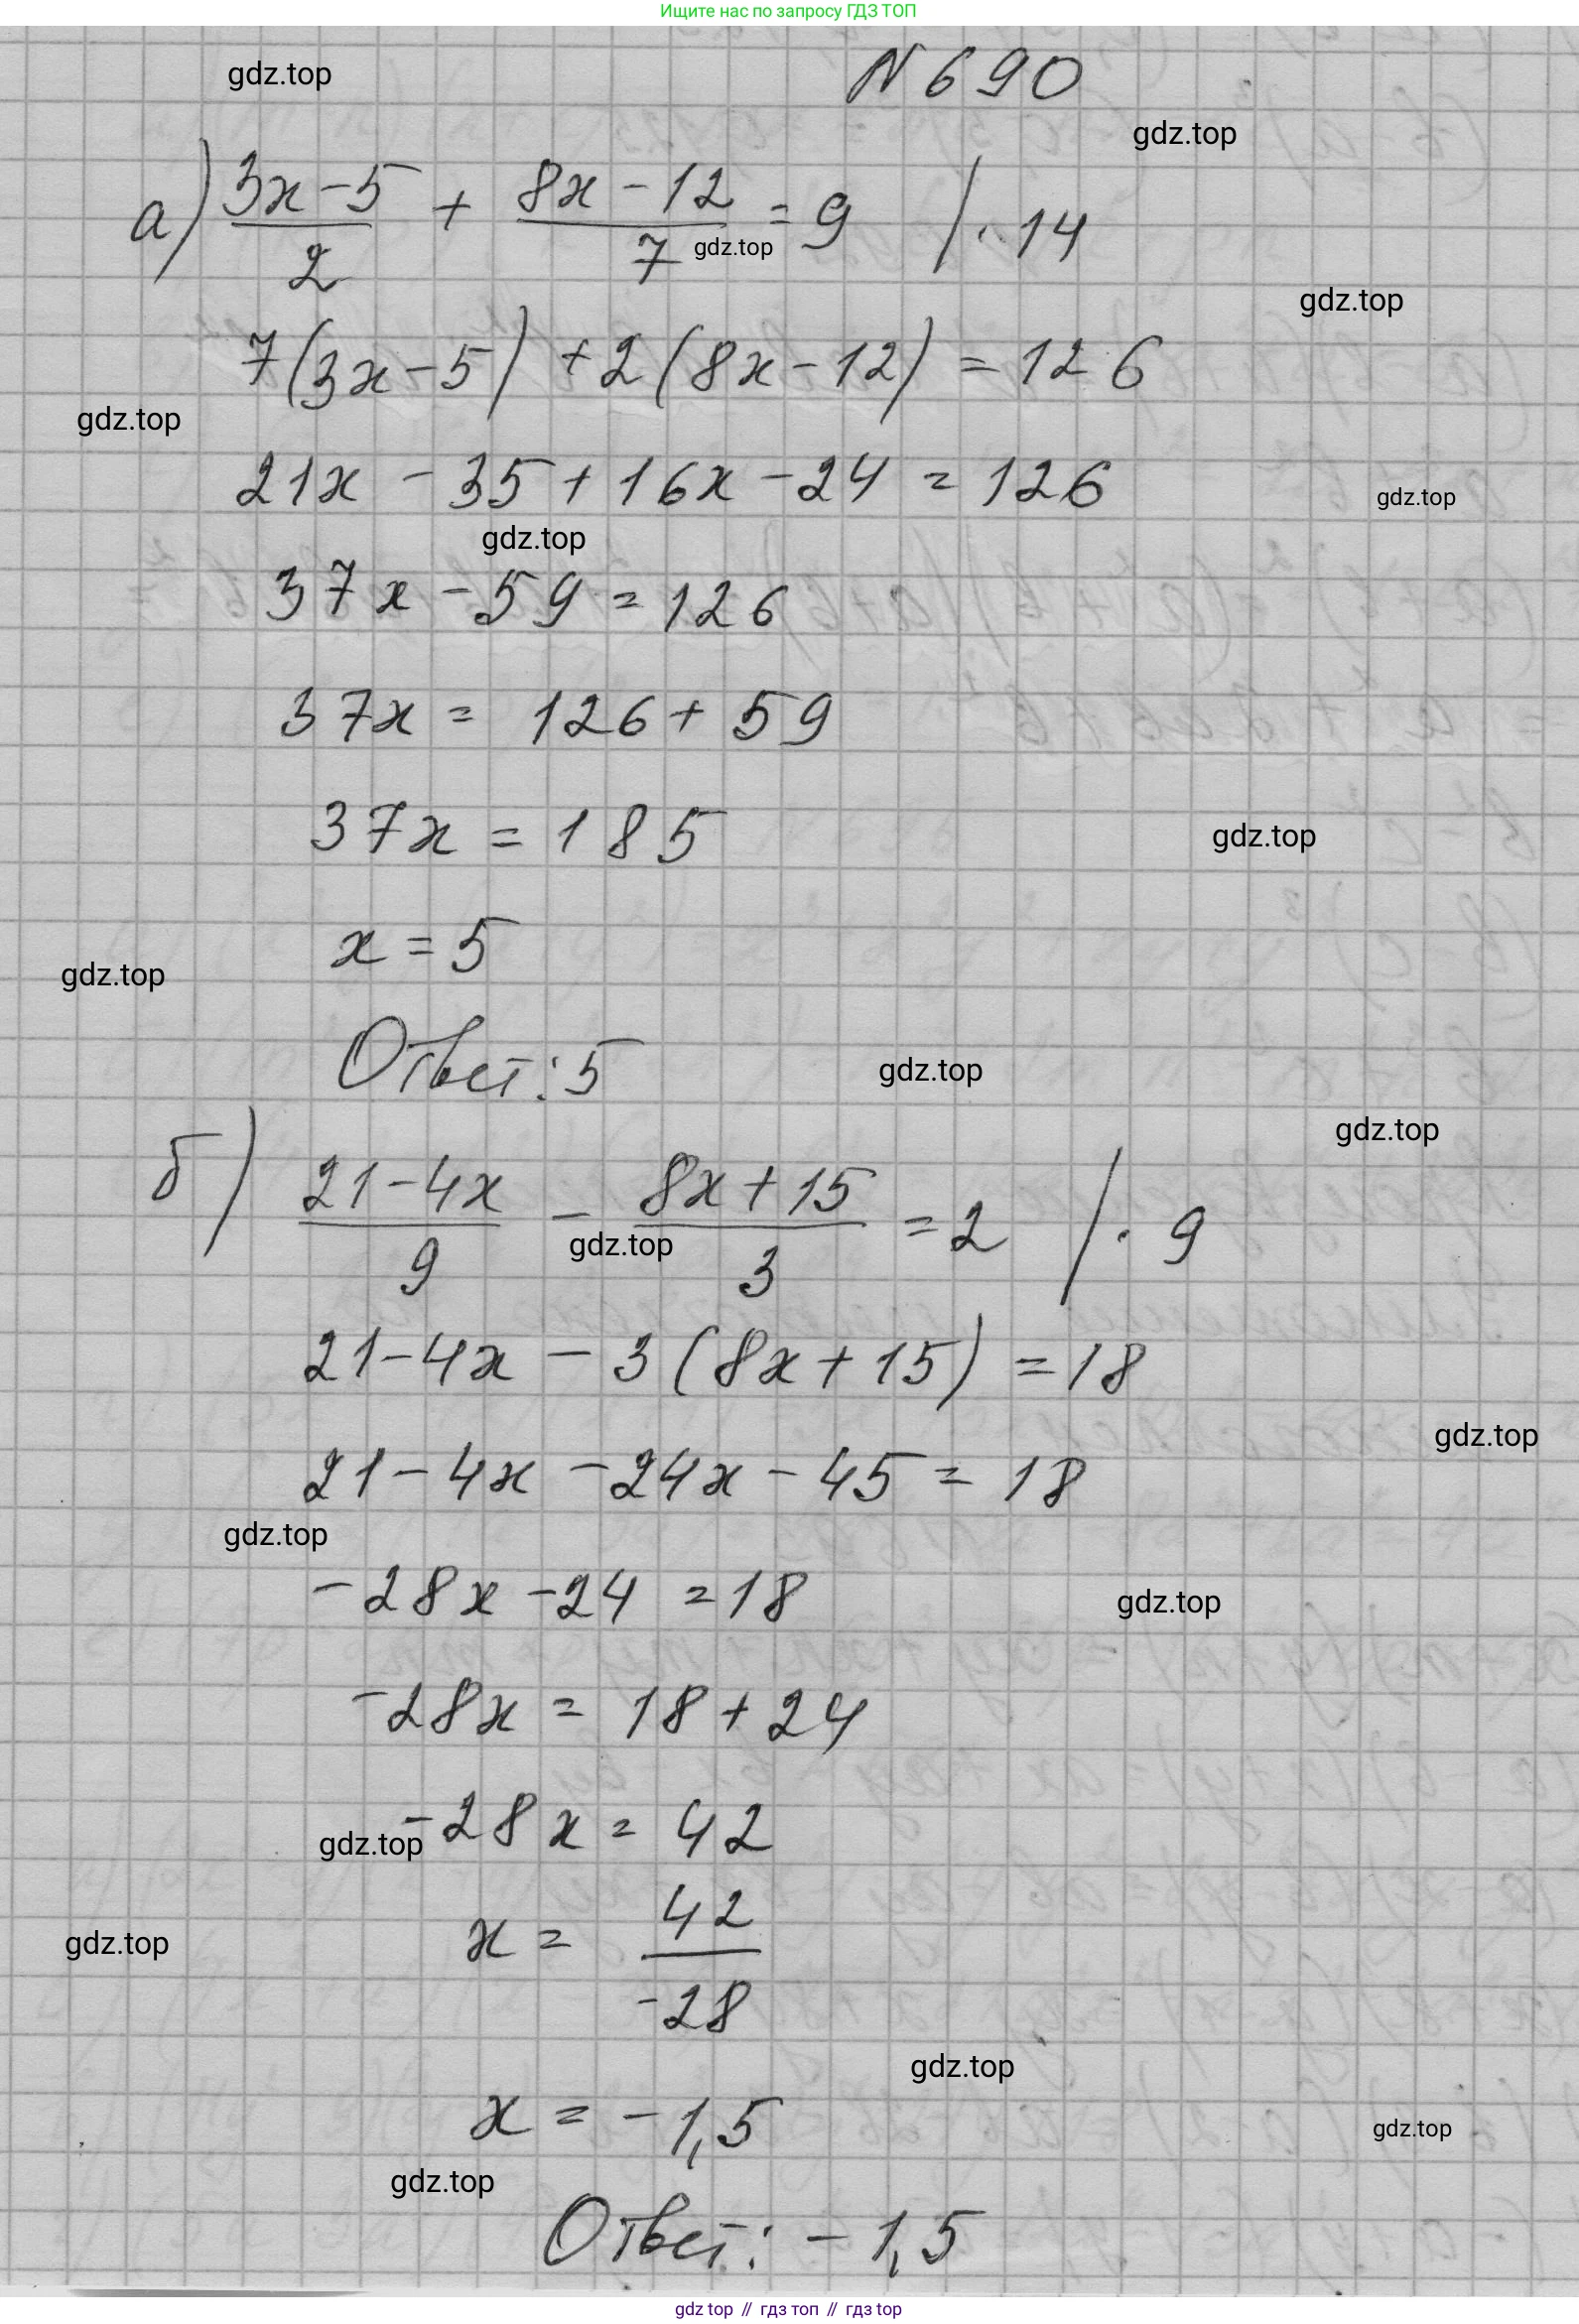 Ищите нас по запросу ГДЗ ТОП
N 690
gdz.top
gdz.top
а) (3x-5)/2 + (8x-12)/7 = 9 / · 14
gdz.top
gdz.top
7(3x-5) + 2(8x-12) = 126
gdz.top
21x - 35 + 16x - 24 = 126
gdz.top
gdz.top
37x - 59 = 126
37x = 126 + 59
37x = 185
gdz.top
x = 5
gdz.top
Ответ: 5
gdz.top
gdz.top
б) (21-4x)/9 - (8x+15)/3 = 2 / · 9
gdz.top
21-4x - 3(8x+15) = 18
gdz.top
21-4x - 24x - 45 = 18
gdz.top
-28x - 24 = 18
gdz.top
-28x = 18 + 24
-28x = 42
gdz.top
x = 42/-28
gdz.top
gdz.top
x = -1,5
gdz.top
gdz.top
Ответ: -1,5
gdz top // гдз топ // гдз top